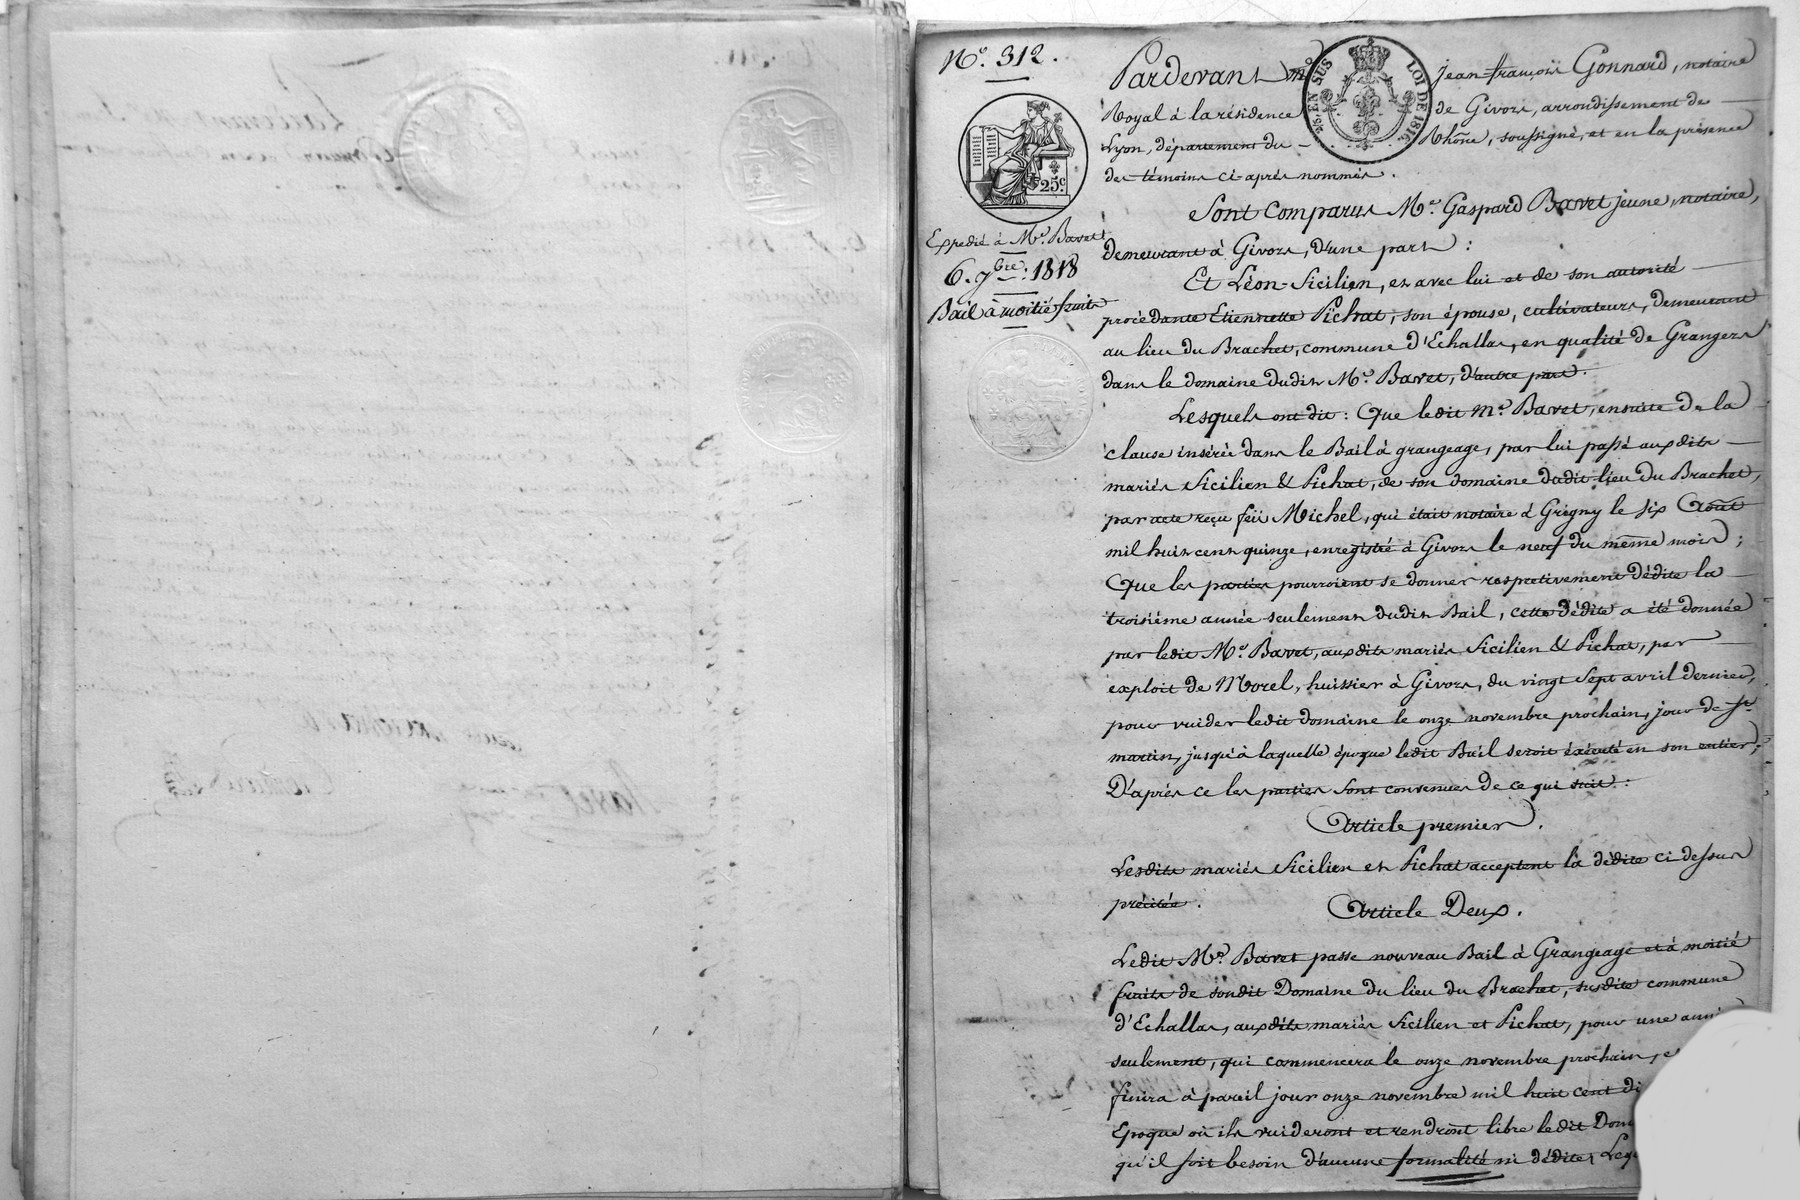 N.º 312.
25.c
Expedié à M.e Bavet
6. 9bre. 1818
Bail à moitié fruits
Pardevant M.e Jean-françois Gonnard, notaire
25c. EN SUS LOI DE 1816.
Royal à la résidence de Givors, arrondissement de
Lyon, département du Rhône, soussigné, et en la présence
des témoins ci-après nommés.
Sont comparus M.e Gaspard Bavet jeune, notaire,
demeurant à Givors, d'une part :
Et Léon-Sicilien, et avec lui et de son autorité
procédante Etiennette Pichat, son épouse, cultivateurs, demeurant
au lieu du Brachet, commune d'Echallas, en qualité de Grangers
dans le domaine dudit M.e Bavet, d'autre part.
Lesquels ont dit : Que ledit M.e Bavet, ensuite de la
clause insérée dans le Bail à grangeage, par lui passé auxdits
mariés Sicilien & Pichat, de son domaine dudit lieu du Brachet,
par acte reçu feu Michel, qui était notaire à Grigny le six Août
mil huit cent quinze, enregistré à Givors le neuf du même mois ;
Que les parties pourroient se donner respectivement dédite la
troisième année seulement dudit Bail, cette dédite a été donnée
par ledit M.e Bavet, auxdits mariés Sicilien & Pichat, par
exploit de Morel, huissier à Givors, du vingt Sept avril dernier,
pour vuider ledit domaine le onze novembre prochain, jour de St.
martin, jusqu'à laquelle époque ledit Bail seroit éxécuté en son entier;
D'après ce les parties sont convenues de ce qui suit :
Article premier.
Lesdits mariés Sicilien et Pichat acceptent la dédite ci dessus
précitée.
Article Deux.
Ledit M.e Bavet passe nouveau Bail à Grangeage et à moitié
fruits de sondit Domaine du lieu du Brachet, susdite commune
d'Echallas, auxdits mariés Sicilien et Pichat, pour une
seulement, qui commencera le onze novembre prochain,
finira à pareil jour onze novembre mil huit cent
Epoque où ils vuideront et rendront libre ledit
qu'il soit besoin d'aucune formalité ni dédite,